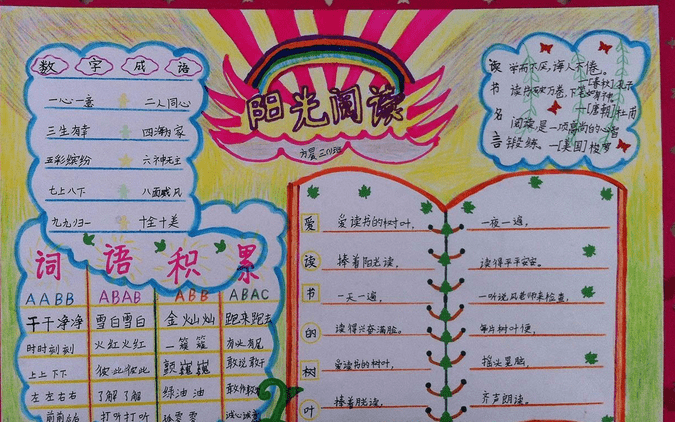 阳光阅读
数字成语
一心一意 二人同心
三生有幸 四海为家
五彩缤纷 六神无主
七上八下 八面威风
九九归一 十全十美
读书名言
学而不厌,诲人不倦。
—[春秋]孔子
读书破万卷,下笔如有神。
—[唐朝]杜甫
阅读是一项高尚的心智
锻练。—[美国]梭罗
词语积累
AABB ABAB ABB ABAC
干干净净 雪白雪白 金灿灿 跑来跑去
时时刻刻 火红火红 一簇簇 有头有尾
上上下下 彼此彼此 颤巍巍 敢说敢干
左左右右 了解了解 绿油油
打听打听 诚心诚意
爱读书的树叶
爱读书的树叶,
捧着阳光读,
一天一遍,
读得兴奋满脸。
爱读书的树叶,
捧着脸读,
一夜一遍,
读得平平安安。
一听说风老师来检查,
每片树叶便,
摇头晃脑,
齐声朗读。